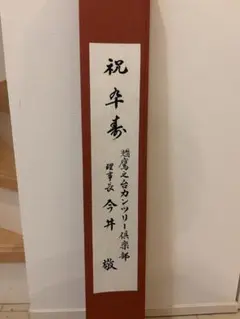 祝卆寿
鷹之台カンツリー倶楽部
理事長 今井 敬